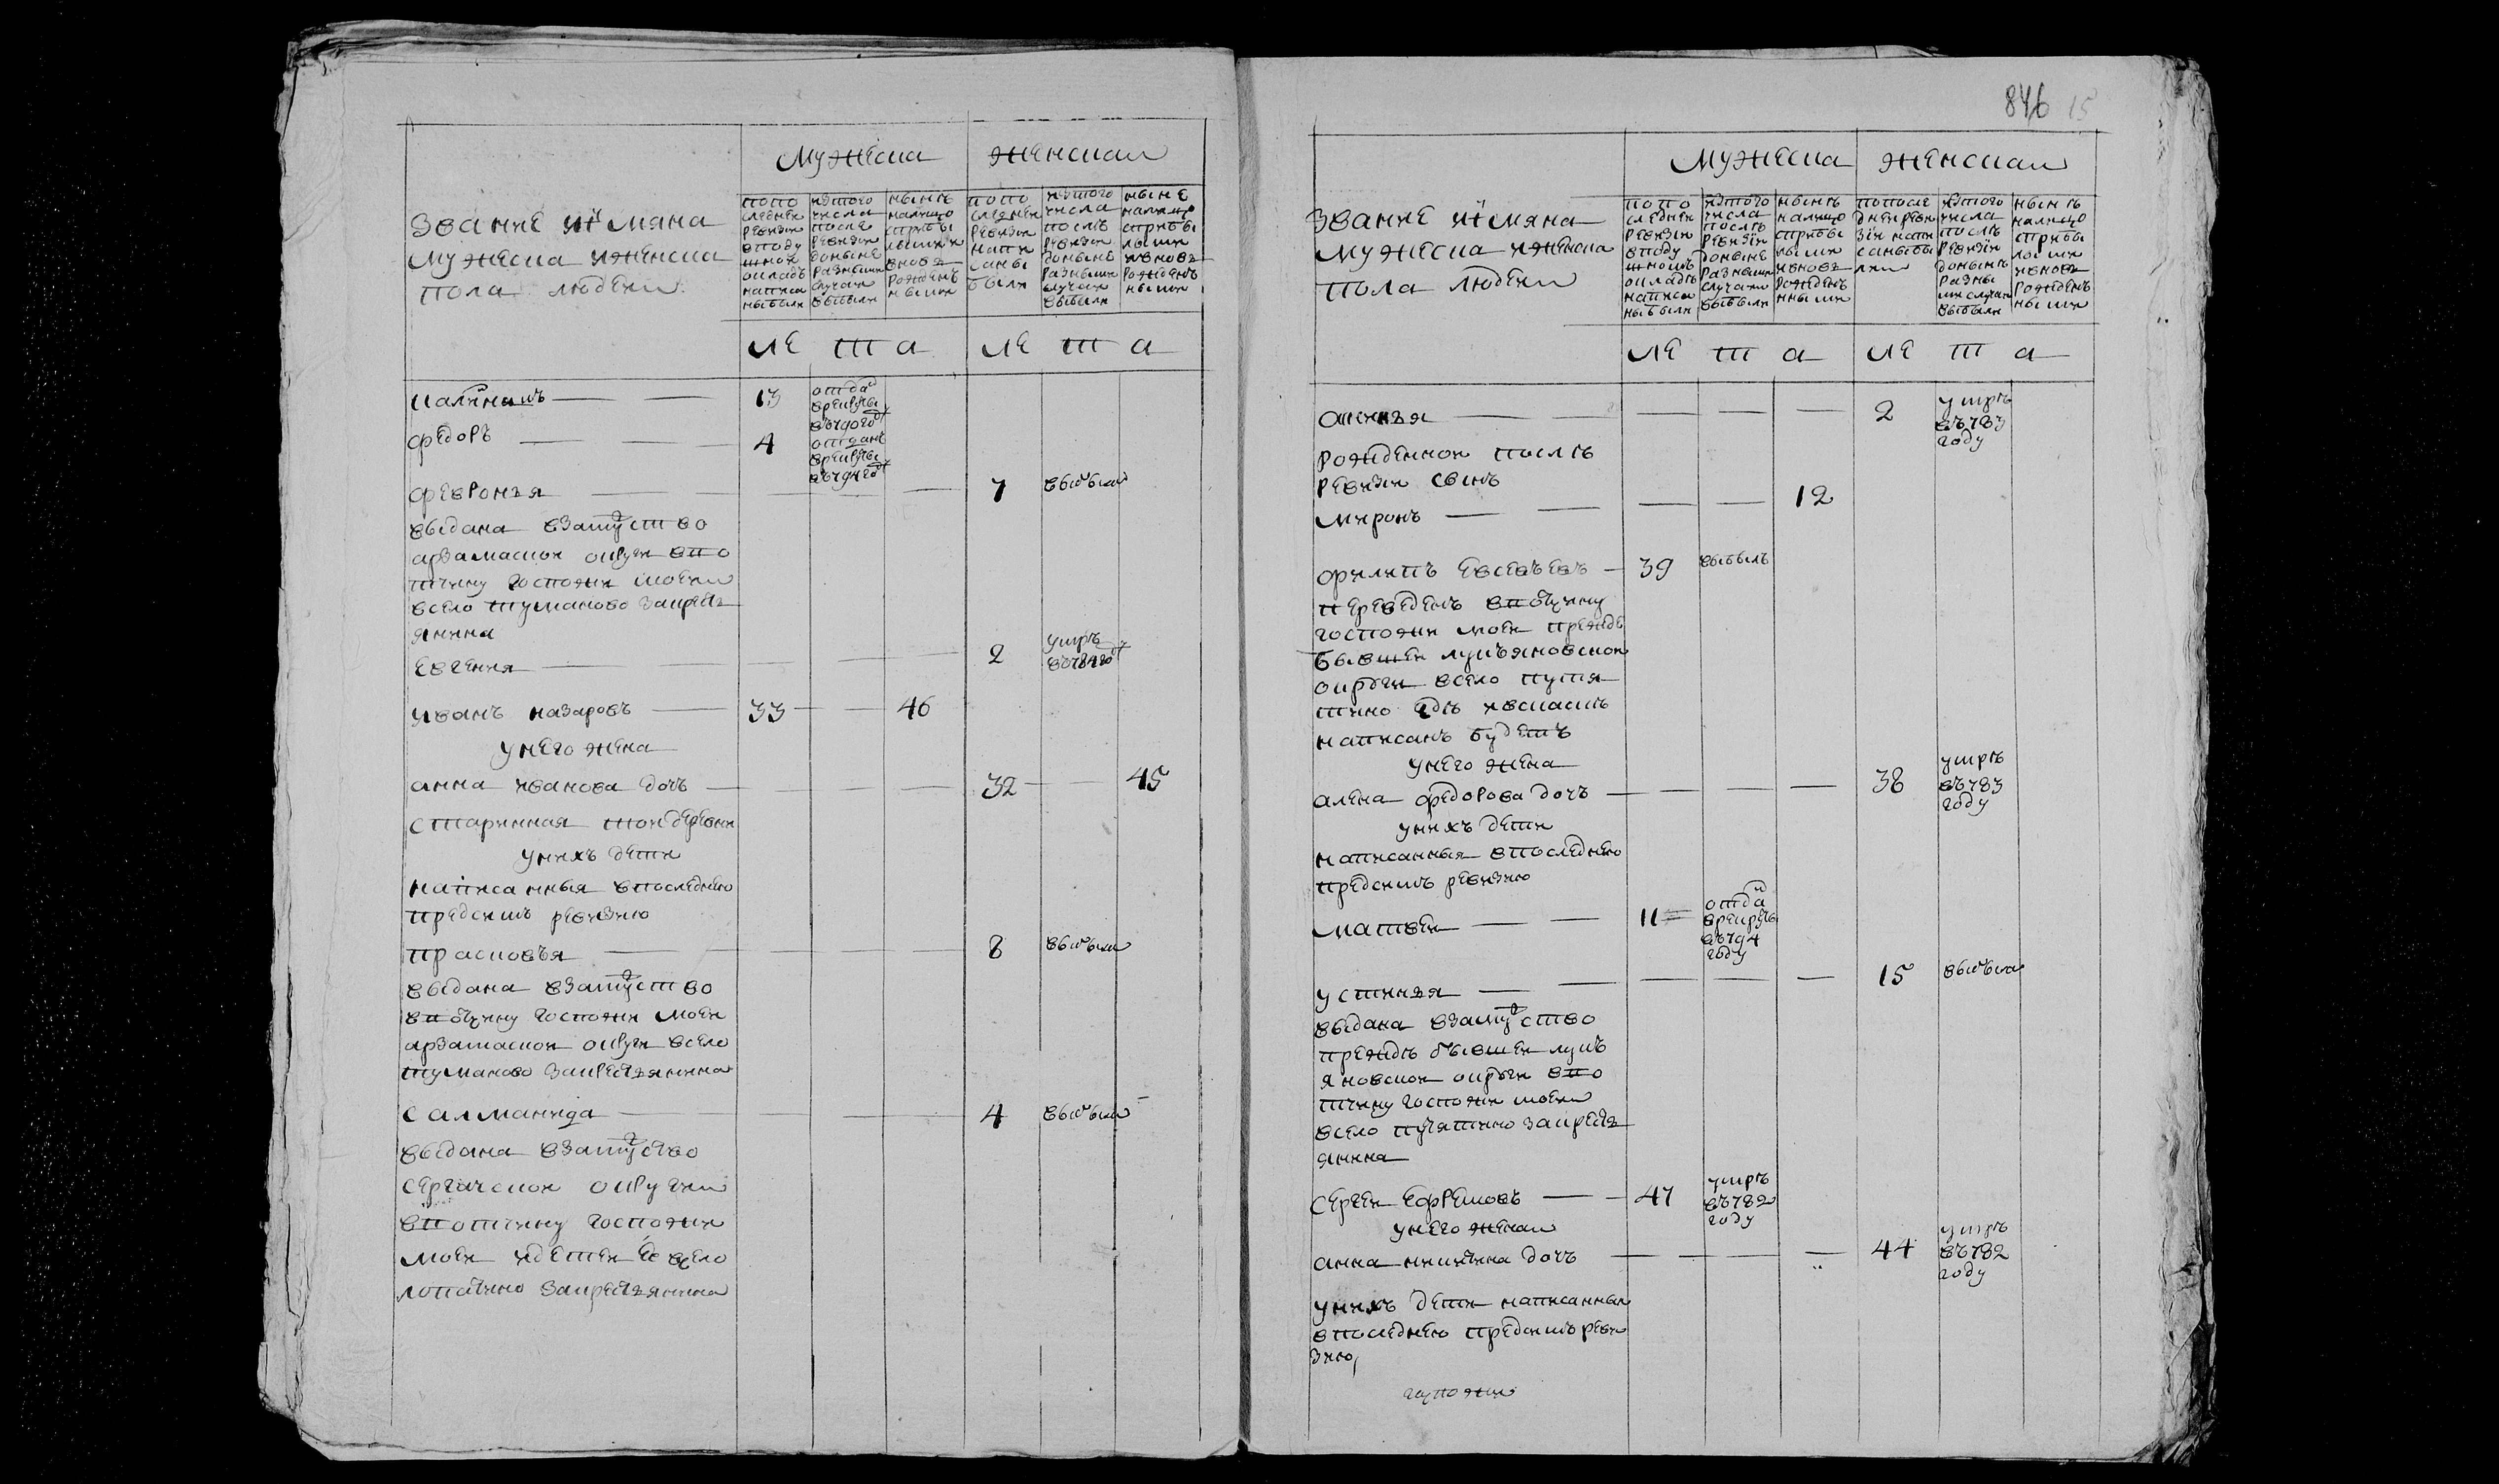 мужеска женска
звание и имяна
мужеска и женска
пола людей
по по
следней
ревизии
в поду
шной
окладъ
написа
ны были
из того
числа
после
ревизии
до ныне
разными
случаи
выбыли
ныне
налицо
с прибы
лыми и
вновь
рожденъ
ными
по по
следней
ревизии
напи
саны
были
из того
числа
после
ревизии
до ныне
разными
случаи
выбыли
ныне
налицо
с прибы
лыми
и вновь
рожденъ
ными
ле та ле та
13 отда
в рекруты
въ 790 год
федоръ 4 отданъ
в рекруты
въ 794 год
февронья 7 выбыла
выдана в замужство
арзамаской округи в во
тчину госпожи моей
в село туманово за кресть
янина
евгения 2 умре
въ 784 год
иванъ назаровъ 33 46
у него жена
анна иванова дочь 32 45
старинная той деревни
у нихъ дети
написанныя в последнею
предъ симъ ревизию
прасковья 8 выбыла
выдана в замужство
в вотчину госпожи моей
арзамаской округи в село
туманово за крестьянина
саламанида 4 выбыла
выдана в замужство
сергачской округи
в вотчину госпожи
моей и детей ее в село
лопатино за крестьянина
846 15
мужеска женска
звание и имяна
мужеска и женска
пола людей
по по
следней
ревизии
в поду
шномъ
окладе
написа
ны были
из того
числа
после
ревизии
до ныне
разными
случаи
выбыли
ныне
налицо
с прибы
лыми
и вновь
рожденъ
ными
по после
дней реви
зии напи
саны бы
ли
из того
числа
после
ревизии
до ныне
разны
ми случаи
выбыли
ныне
налицо
с прибы
лыми
и вновь
рожденъ
ными
ле та ле та
аксинья 2 умре
въ 783
году
рожденной после
ревизии сынъ
миронъ 12
филипъ евсевьевъ 39 выбылъ
переведенъ в вотчину
госпожи моей прежде
бывшей лукьяновской
округи в село путя
тино где и в сказке
написанъ будетъ
у него жена
алена федорова дочь 38 умре
въ 783
году
у нихъ дети
написанныя в последнею
предъ симъ ревизию
матвей 11 отда
в рекруты
въ 794
году
устинья 15 выбыла
выдана в замужство
прежде бывшей лукь
яновской округи в во
тчину госпожи моей
в село путятино за кресть
янина
сергей ефремовъ 47 умре
въ 782
году
у него жена
анна никитина дочь 44 умре
въ 782
году
у нихъ дети написанныя
в последнею предъ симъ реви
зию